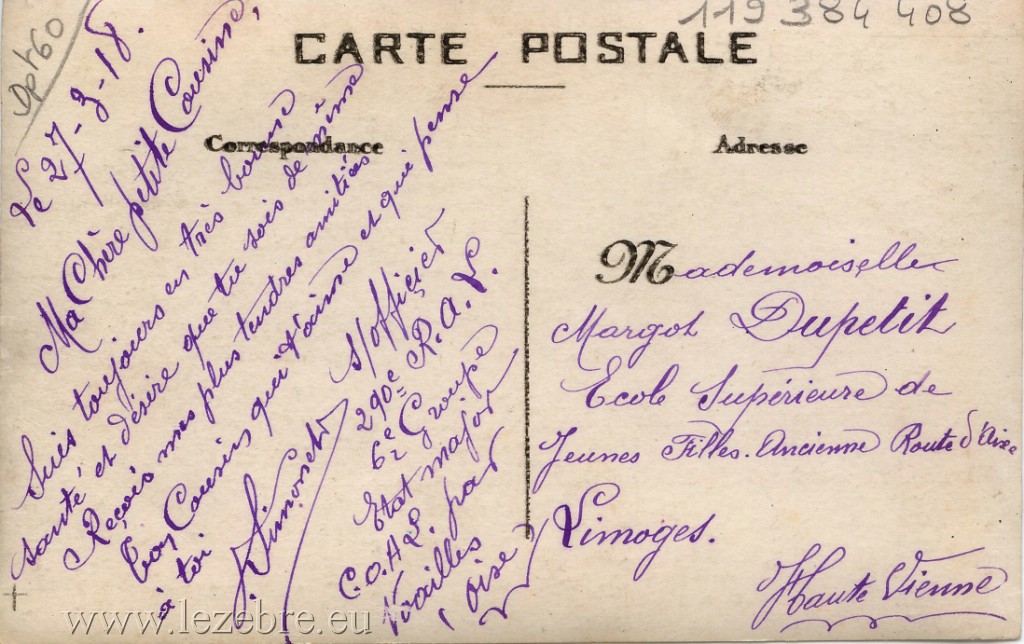 119 384 408
CARTE POSTALE
Correspondance
Adresse
Le 27-3-18.
Ma Chère petite Cousine,
Suis toujours en très bonne
santé et désire que tu sois de même
Reçois mes plus tendres amitiés
ton Cousin qui t'aime et qui pense
à toi
s/officier
290e R.A.L.
6e Groupe
Etat major
C.O.A.L. par
Noailles
(Oise)
Mademoiselle
Margot Dupetit
Ecole Supérieure de
Jeunes Filles. Ancienne Route d'Aixe
Limoges.
Haute Vienne
www.lezebre.eu